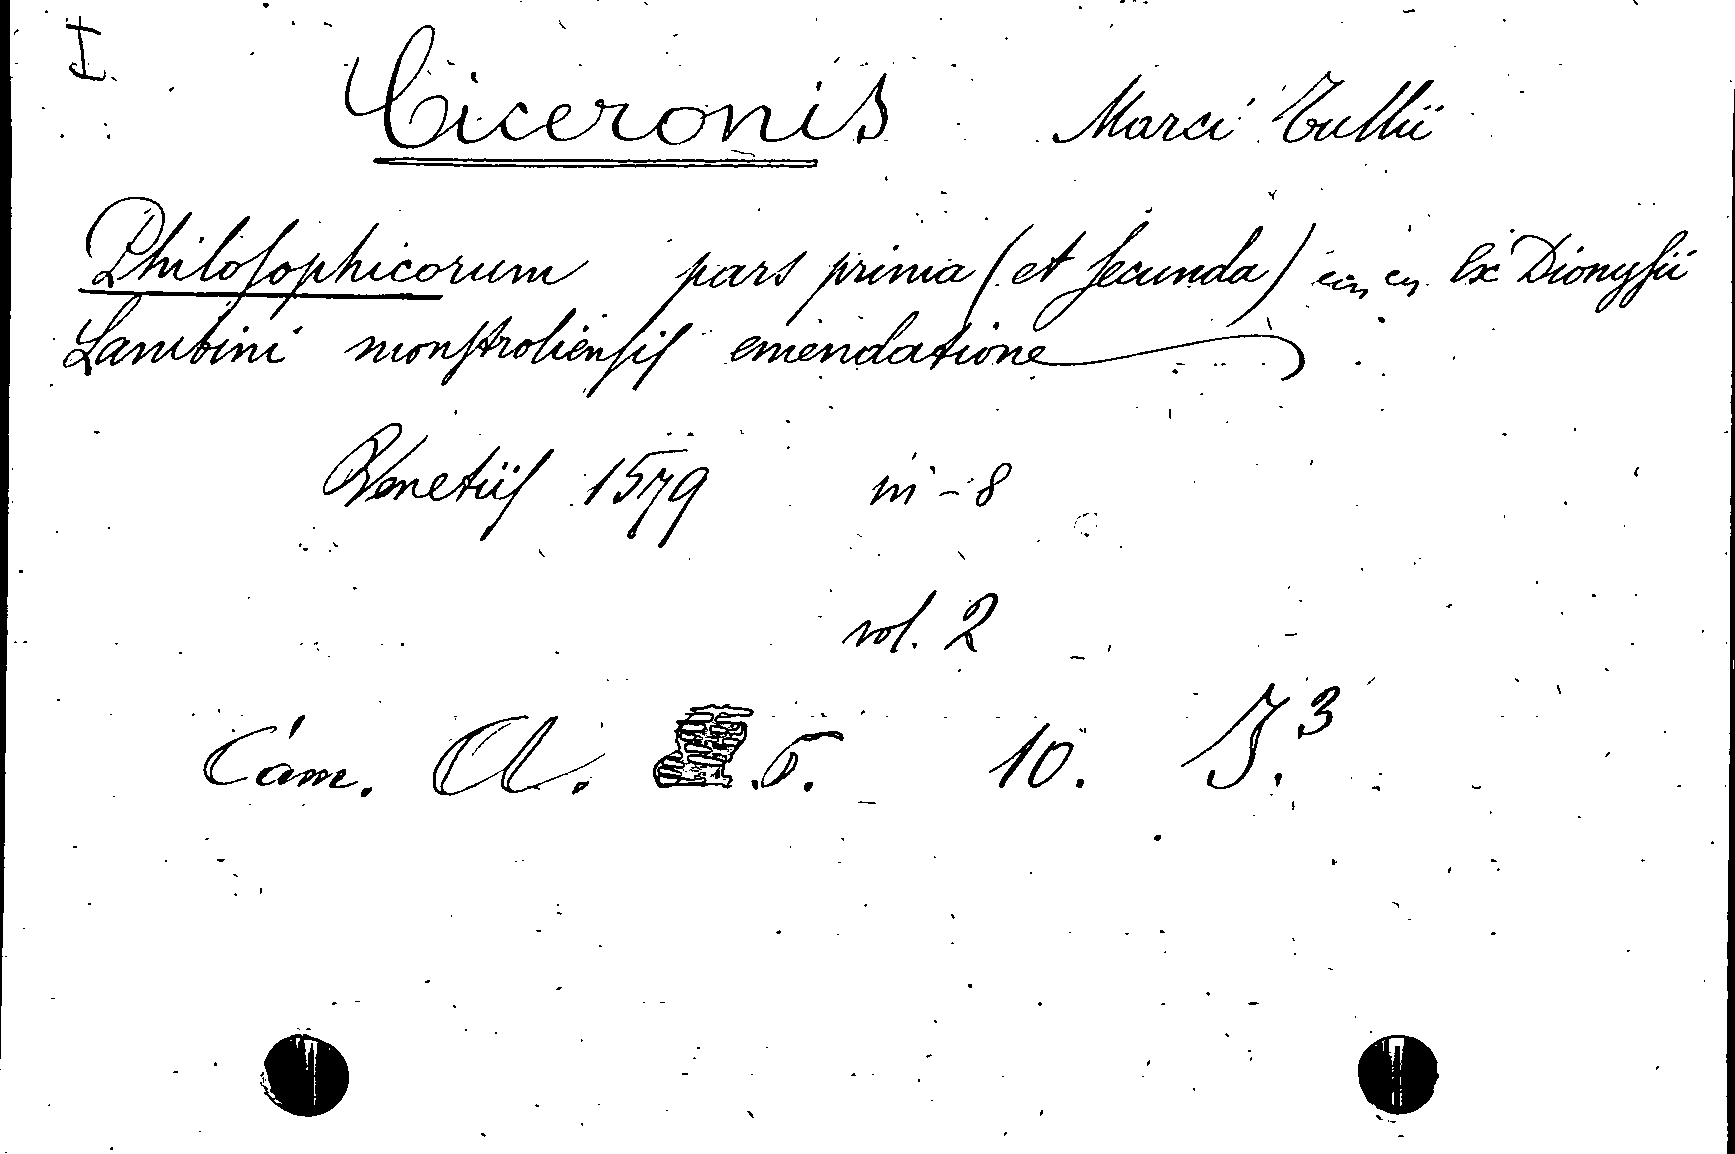 I
Ciceronis Marci Tullii
Philosophicorum pars prima (et secunda) ex Dionysii
Lambini monstroliensis emendatione
Venetiis 1579 in-8
vol. 2
Cam. A. 5. 10. I.3